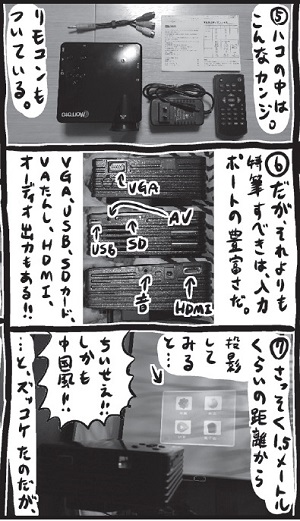 ⑤ハコの中は
こんなカンジ。
リモコンも
ついている。
⑥だがそれよりも
特筆すべきは、入力
ポートの豊富さだ。
VGA
AV
USB
SD
音
HDMI
VGA、USB、SDカード、
VAたんし、HDMI、
オーディオ出力もある!!
⑦さっそく1.5メートル
くらいの距離から
投影
して
みる
と…
ちいせぇ!!
しかも
中国風!!
…と、ズッコケたのだが、